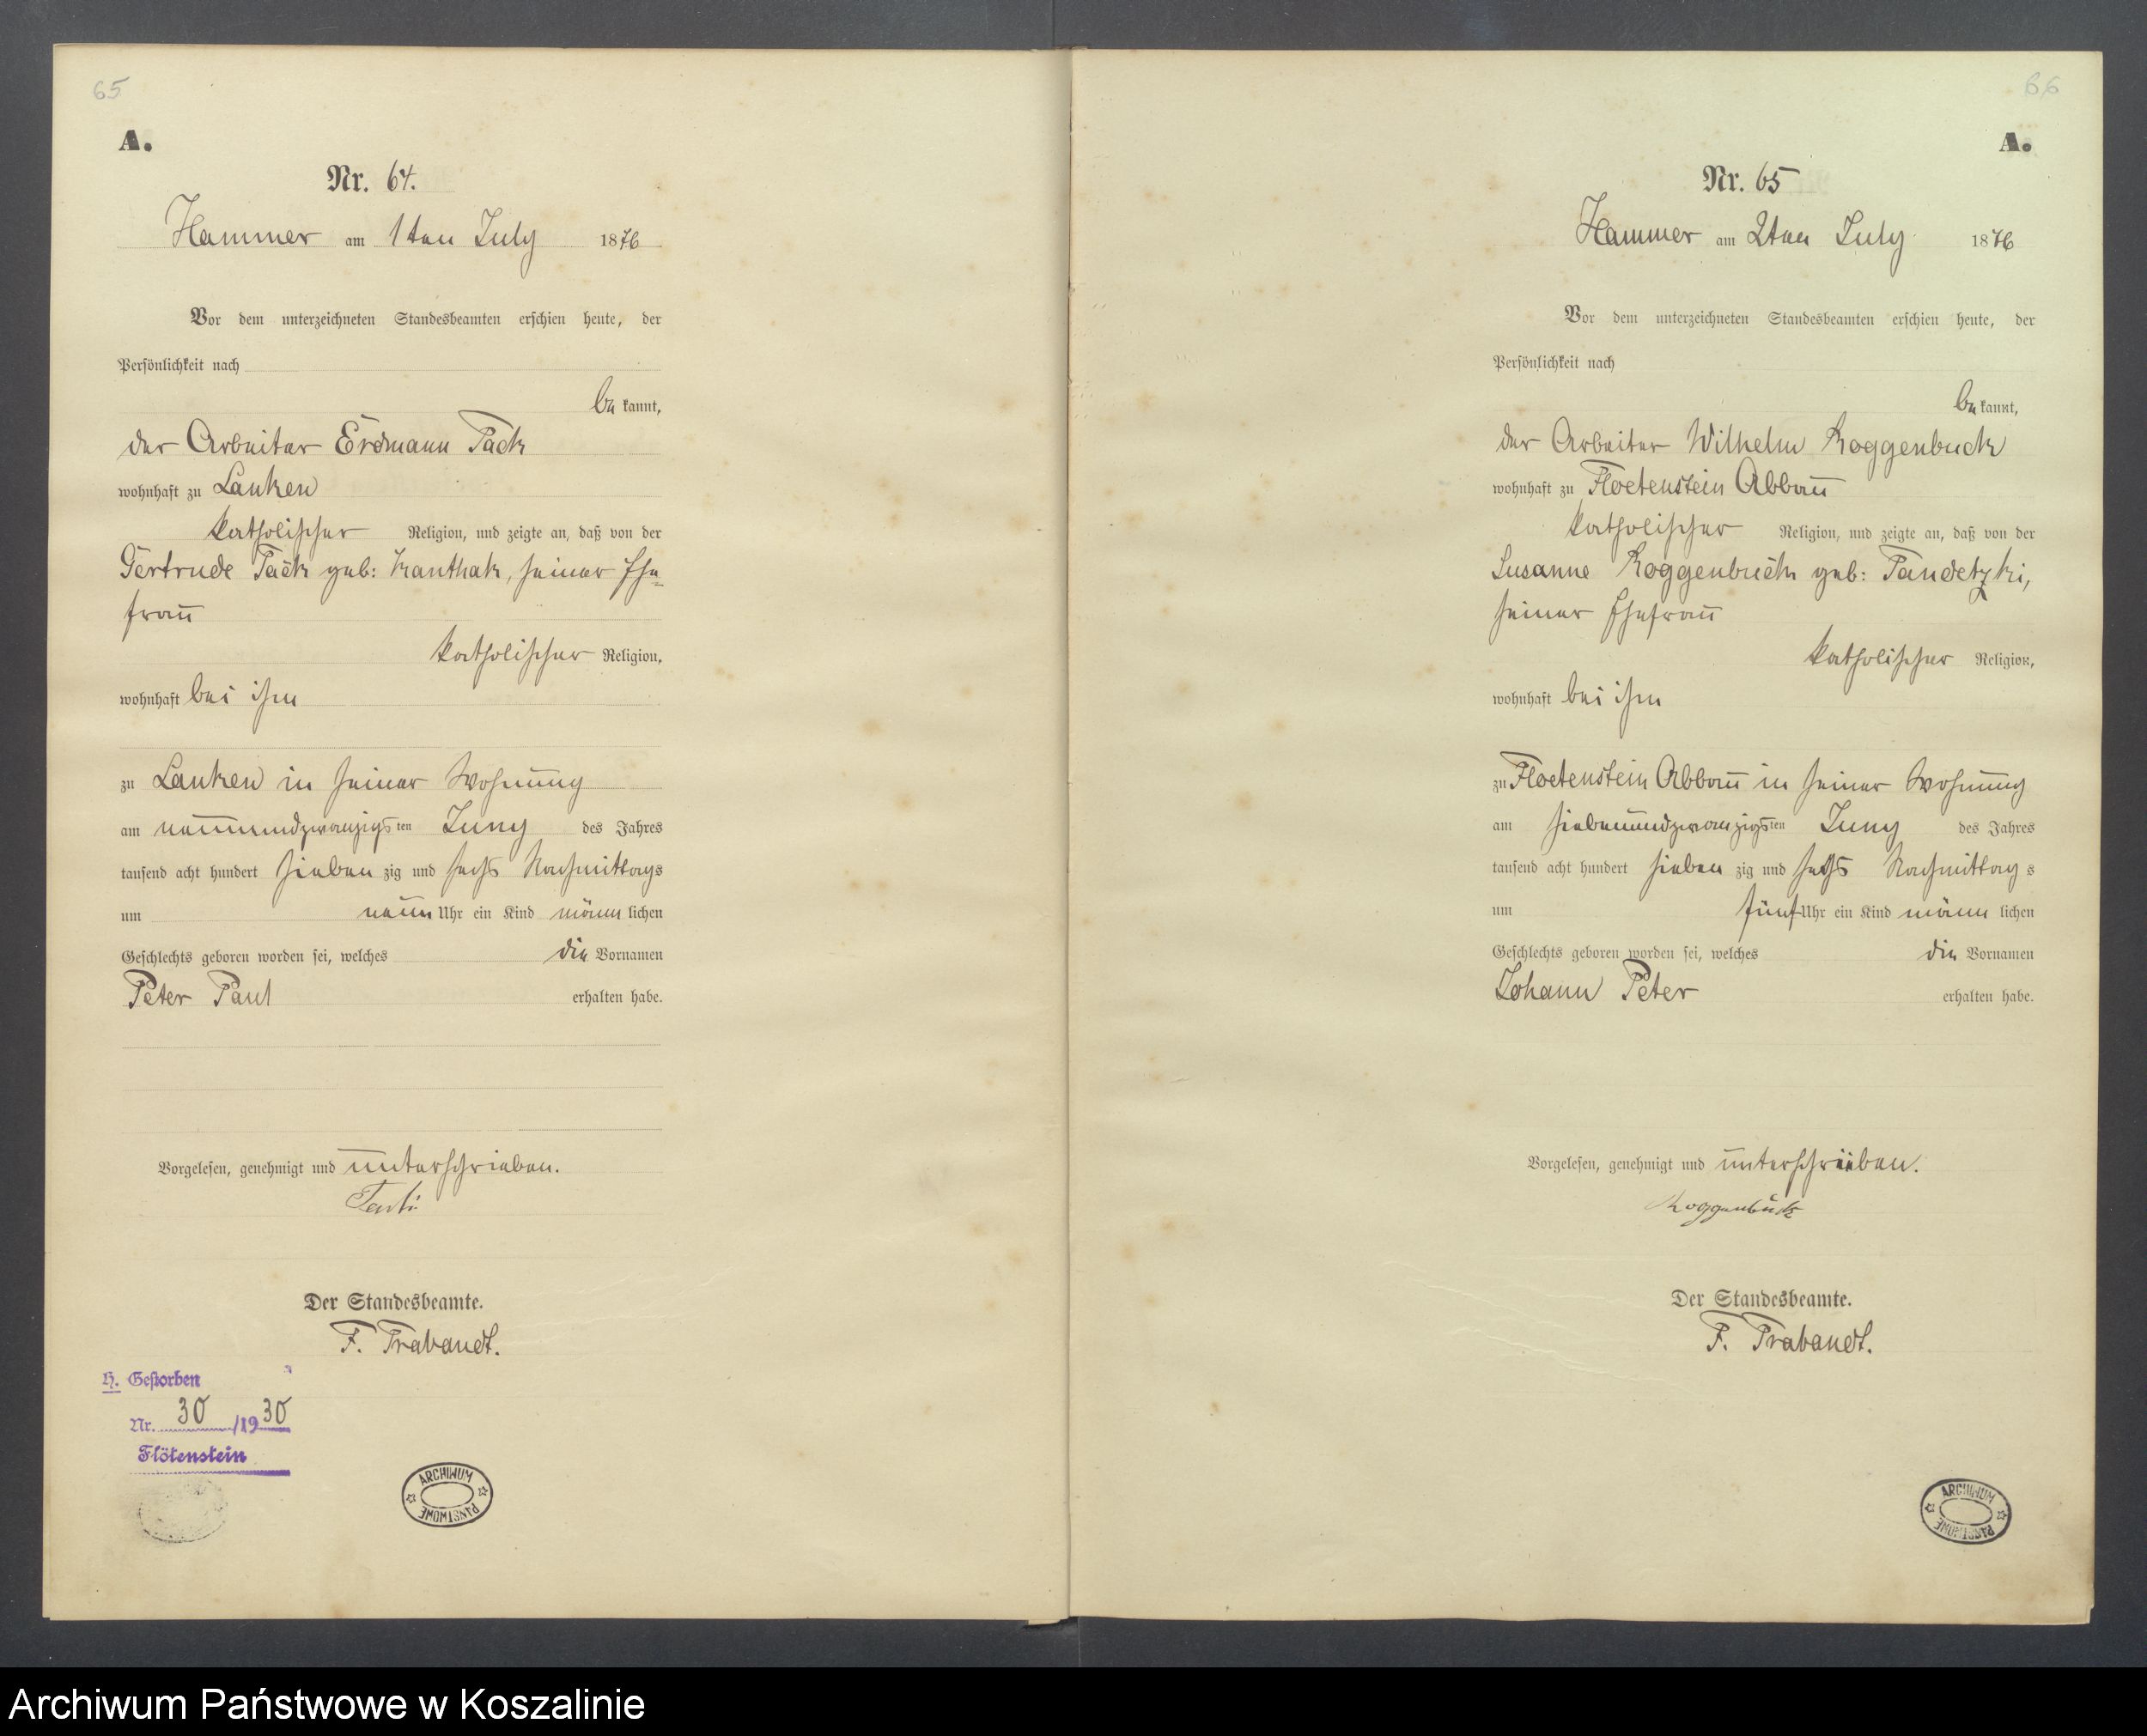 65
A.
Nr. 64.
Hammer am 1ten July 1876
Vor dem unterzeichneten Standesbeamten erschien heute, der
Persönlichkeit nach
be kannt,
der Arbeiter Erdmann Pack
wohnhaft zu Lanken
katholischer Religion, und zeigte an, daß von der
Gertrude Pack geb: Kanthak, seiner Ehe-
frau
katholischer Religion,
wohnhaft bei ihm
zu Lanken in seiner Wohnung
am neunundzwanzigsten Juny des Jahres
tausend acht hundert sieben zig und sechs Nachmittags
um neun Uhr ein Kind männ lichen
Geschlechts geboren worden sei, welches die Vornamen
Peter Paul erhalten habe.
Vorgelesen, genehmigt und unterschrieben.
Der Standesbeamte.
F. Trabandt.
H. Gestorben
Nr. 30 /1930
Flötenstein
ARCHIWUM PAŃSTWOWE
66
A.
Nr. 65
Hammer am 2ten July 1876
Vor dem unterzeichneten Standesbeamten erschien heute, der
Persönlichkeit nach
be kannt,
der Arbeiter Wilhelm Roggenbuck
wohnhaft zu Floetenstein Abbau
katholischer Religion, und zeigte an, daß von der
Susanne Roggenbuck geb: Pandetzki,
seiner Ehefrau
katholischer Religion,
wohnhaft bei ihm
zu Floetenstein Abbau in seiner Wohnung
am siebenundzwanzigsten Juny des Jahres
tausend acht hundert sieben zig und sechs Nachmittag s
um fünf Uhr ein Kind männ lichen
Geschlechts geboren worden sei, welches die Vornamen
Johann Peter erhalten habe.
Vorgelesen, genehmigt und unterschrieben.
Roggenbuck
Der Standesbeamte.
F. Trabandt.
ARCHIWUM PAŃSTWOWE
Archiwum Państwowe w Koszalinie